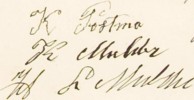 K Postma
K Mulder
H L Mulder